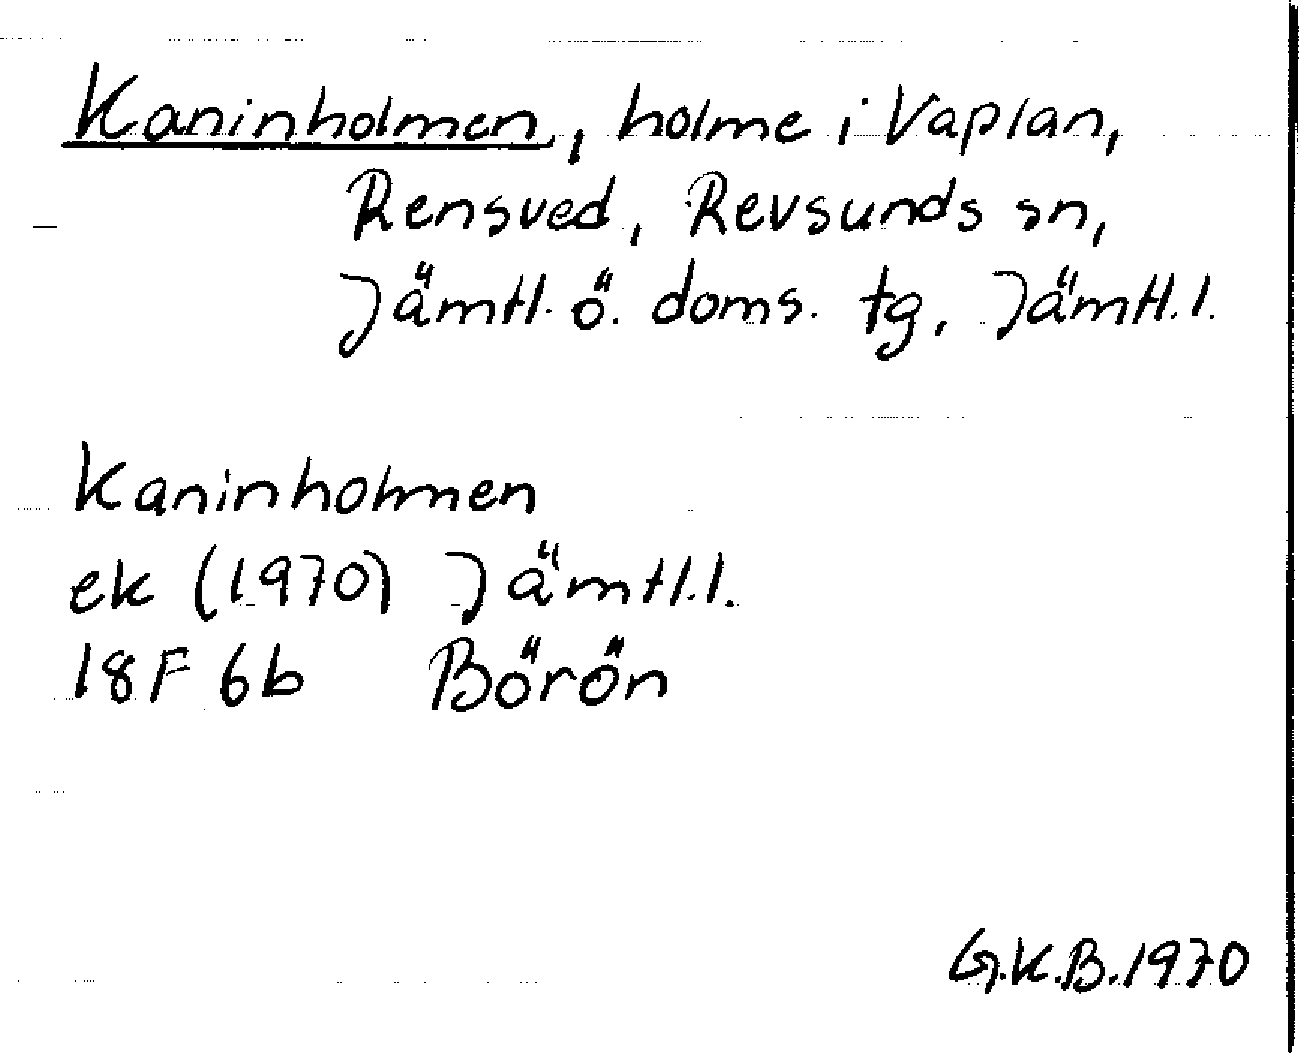 Kaninholmen, holme i Vaplan,
Rensved, Revsunds sn,
Jämtl. ö. doms. tg, Jämtl. l.
Kaninholmen
ek (1970) Jämtl. l.
18F 6b Börön
G.K.B. 1970